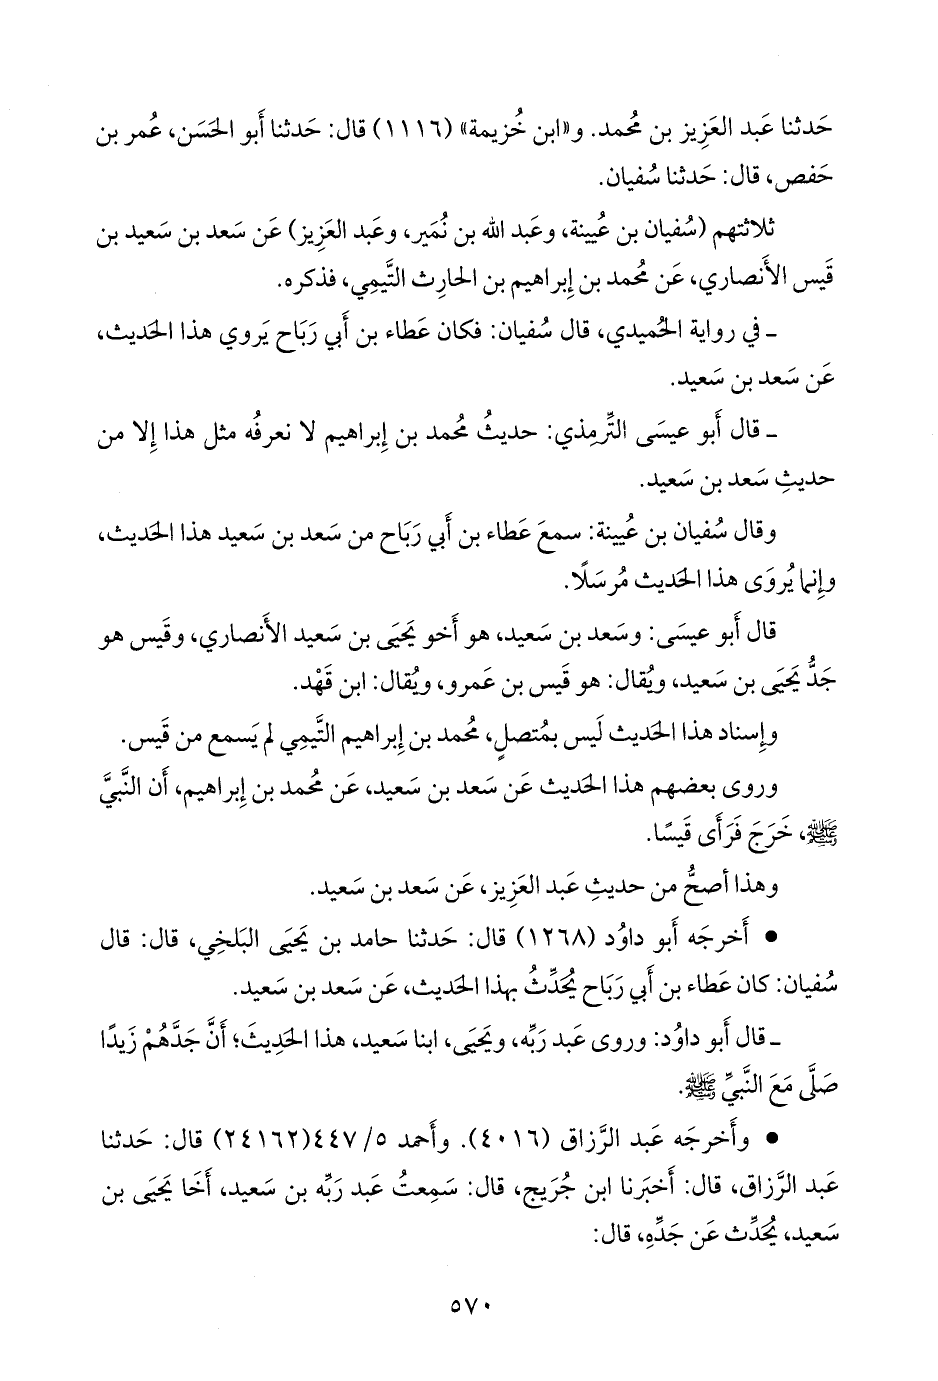 حَدثنا عَبد العَزِيز بن مُحمد. و«ابن خُزيمة» (١١١٦) قال: حَدثنا أَبو الحَسَن، عُمر بن
حَفص، قال: حَدثنا سُفيان.
ثلاثتهم (سُفيان بن عُيينة، وعَبد الله بن نُمَير، وعَبد العَزِيز) عَن سَعد بن سَعيد بن
قَيس الأَنصاري، عَن مُحمد بن إِبراهيم بن الحارِث التَّيمِي، فذكره.
ـ في رواية الحُميدي، قال سُفيان: فكان عَطاء بن أَبي رَبَاح يَروي هذا الحَديث،
عَن سَعد بن سَعيد.
ـ قال أَبو عيسَى التِّرمِذي: حديثُ مُحمد بن إِبراهيم لا نعرفُه مثل هذا إِلا من
حديثِ سَعد بن سَعيد.
وقال سُفيان بن عُيينة: سمعَ عَطاء بن أَبي رَبَاح من سَعد بن سَعيد هذا الحَديث،
وإِنما يُروَى هذا الحَديث مُرسَلًا.
قال أَبو عيسَى: وسَعد بن سَعيد، هو أَخو يَحيَى بن سَعيد الأَنصاري، وقَيس هو
جَدُّ يَحيَى بن سَعيد، ويُقال: هو قَيس بن عَمرو، ويُقال: ابن قَهْد.
وإِسناد هذا الحَديث لَيس بمُتصلٍ، مُحمد بن إِبراهيم التَّيمِي لم يَسمع من قَيس.
وروى بعضهم هذا الحَديث عَن سَعد بن سَعيد، عَن مُحمد بن إِبراهيم، أَن النَّبيَّ
ﷺ، خَرَجَ فَرَأَى قَيسًا.
وهذا أصحُّ من حديثِ عَبد العَزِيز، عَن سَعد بن سَعيد.
• أَخرجَه أَبو داوُد (١٢٦٨) قال: حَدثنا حامد بن يَحيَى البَلخِي، قال: قال
سُفيان: كان عَطاء بن أَبي رَبَاح يُحَدِّثُ بهذا الحَديث، عَن سَعد بن سَعيد.
ـ قال أَبو داوُد: وروى عَبد رَبِّه، ويَحيَى، ابنا سَعيد، هذا الحَدِيثَ؛ أَنَّ جَدَّهُمْ زَيدًا
صَلَّى مَعَ النَّبيِّ ﷺ.
• وأَخرجَه عَبد الرَّزاق (٤٠١٦). وأَحمد ٥/ ٤٤٧(٢٤١٦٢) قال: حَدثنا
عَبد الرَّزاق، قال: أَخبَرنا ابن جُرَيج، قال: سَمِعتُ عَبد رَبِّه بن سَعيد، أَخَا يَحيَى بن
سَعيد، يُحَدِّث عَن جَدِّهِ، قال:
٥٧٠